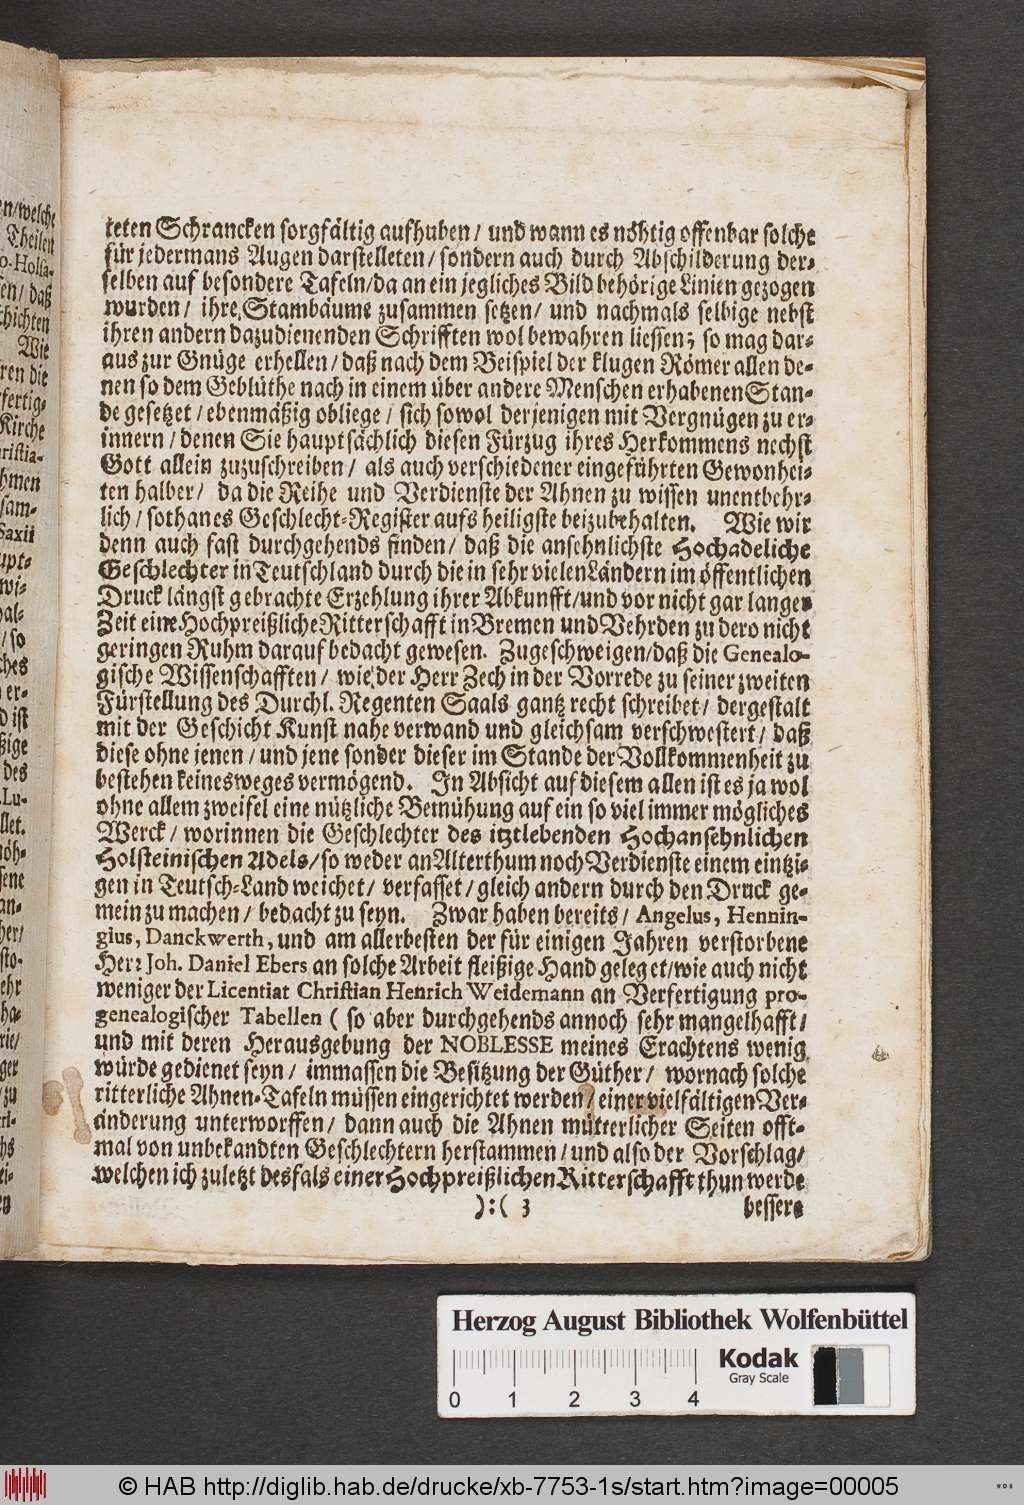 en/welche
Theilen
o-Holsa-
en/ daß
chichten
Wie
ren die
fertig-
Kirche
ristia-
hmen
sam-
Saxii
upt-
wi-
al-
/ so
ches
er-
d ist
ßige
des
Lu-
llet.
nöh-
sene
an-
her/
sto-
ehr
ha-
rie/
ger
/ zu
rl-
chs
ei-
en
teten Schrancken sorgfältig aufhuben/ und wann es nöhtig offenbar solche
für jedermans Augen darstelleten/ sondern auch durch Abschilderung der-
selben auf besondere Tafeln/ da an ein jegliches Bild behörige Linien gezogen
wurden/ ihre Stambäume zusammen setzen/ und nachmals selbige nebst
ihren andern dazudienenden Schrifften wol bewahren liessen; so mag dar-
aus zur Gnüge erhellen/ daß nach dem Beispiel der klugen Römer allen de-
nen so dem Geblüthe nach in einem über andere Menschen erhabenen Stan-
de gesetzet/ ebenmäßig obliege/ sich sowol derjenigen mit Vergnügen zu er-
innern/ denen Sie hauptsächlich diesen Fürzug ihres Herkommens nechst
Gott allein zuzuschreiben/ als auch verschiedener eingeführten Gewonhei-
ten halber/ da die Reihe und Verdienste der Ahnen zu wissen unentbehr-
lich/ sothanes Geschlecht-Register aufs heiligste beizubehalten. Wie wir
denn auch fast durchgehends finden/ daß die ansehnlichste Hochadeliche
Geschlechter in Teutschland durch die in sehr vielen Ländern im öffentlichen
Druck längst gebrachte Erzehlung ihrer Abkunfft/ und vor nicht gar langer
Zeit eine Hochpreißliche Ritterschafft in Bremen und Vehrden zu dero nicht
geringen Ruhm darauf bedacht gewesen. Zugeschweigen/ daß die Genealo-
gische Wissenschafften/ wie der Herr Zech in der Vorrede zu seiner zweiten
Fürstellung des Durchl. Regenten Saals gantz recht schreibet/ dergestalt
mit der Geschicht Kunst nahe verwand und gleichsam verschwestert/ daß
diese ohne jenen/ und jene sonder dieser im Stande der Vollkommenheit zu
bestehen keinesweges vermögend. In Absicht auf diesem allen ist es ja wol
ohne allem zweifel eine nützliche Bemühung auf ein so viel immer mögliches
Werck/ worinnen die Geschlechter des itztlebenden Hochansehnlichen
Holsteinischen Adels/ so weder an Alterthum noch Verdienste einem eintzi-
gen in Teutsch-Land weichet/ verfasset/ gleich andern durch den Druck ge-
mein zu machen/ bedacht zu seyn. Zwar haben bereits/ Angelus, Hennin-
gius, Danckwerth, und am allerbesten der für einigen Jahren verstorbene
Herr Joh. Daniel Ebers an solche Arbeit fleißige Hand geleget/ wie auch nicht
weniger der Licentiat Christian Henrich Weidemann an Verfertigung pro-
genealogischer Tabellen ( so aber durchgehends annoch sehr mangelhafft/
und mit deren Herausgebung der NOBLESSE meines Erachtens wenig
würde gedienet seyn/ immassen die Besitzung der Güther/ wornach solche
ritterliche Ahnen-Tafeln müssen eingerichtet werden/ einer vielfältigen Ver-
änderung unterworffen/ dann auch die Ahnen mütterlicher Seiten offt-
mal von unbekandten Geschlechtern herstammen/ und also der Vorschlag/
welchen ich zuletzt desfals einer Hochpreißlichen Ritterschafft thun werde
):( 3 bessere
Herzog August Bibliothek Wolfenbüttel
Kodak
Gray Scale
0 1 2 3 4
© HAB http://diglib.hab.de/drucke/xb-7753-1s/start.htm?image=00005